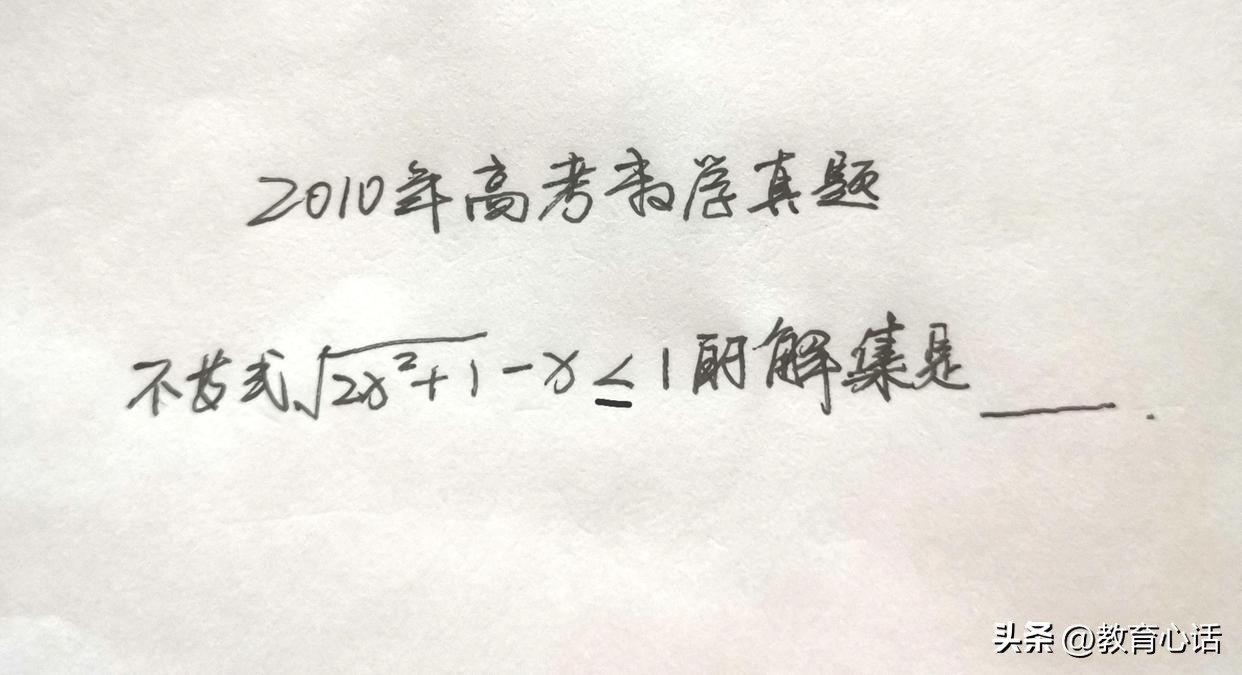 2010年高考数学真题
不等式√(2x²+1) - x ≤ 1的解集是____.
头条 @教育心话